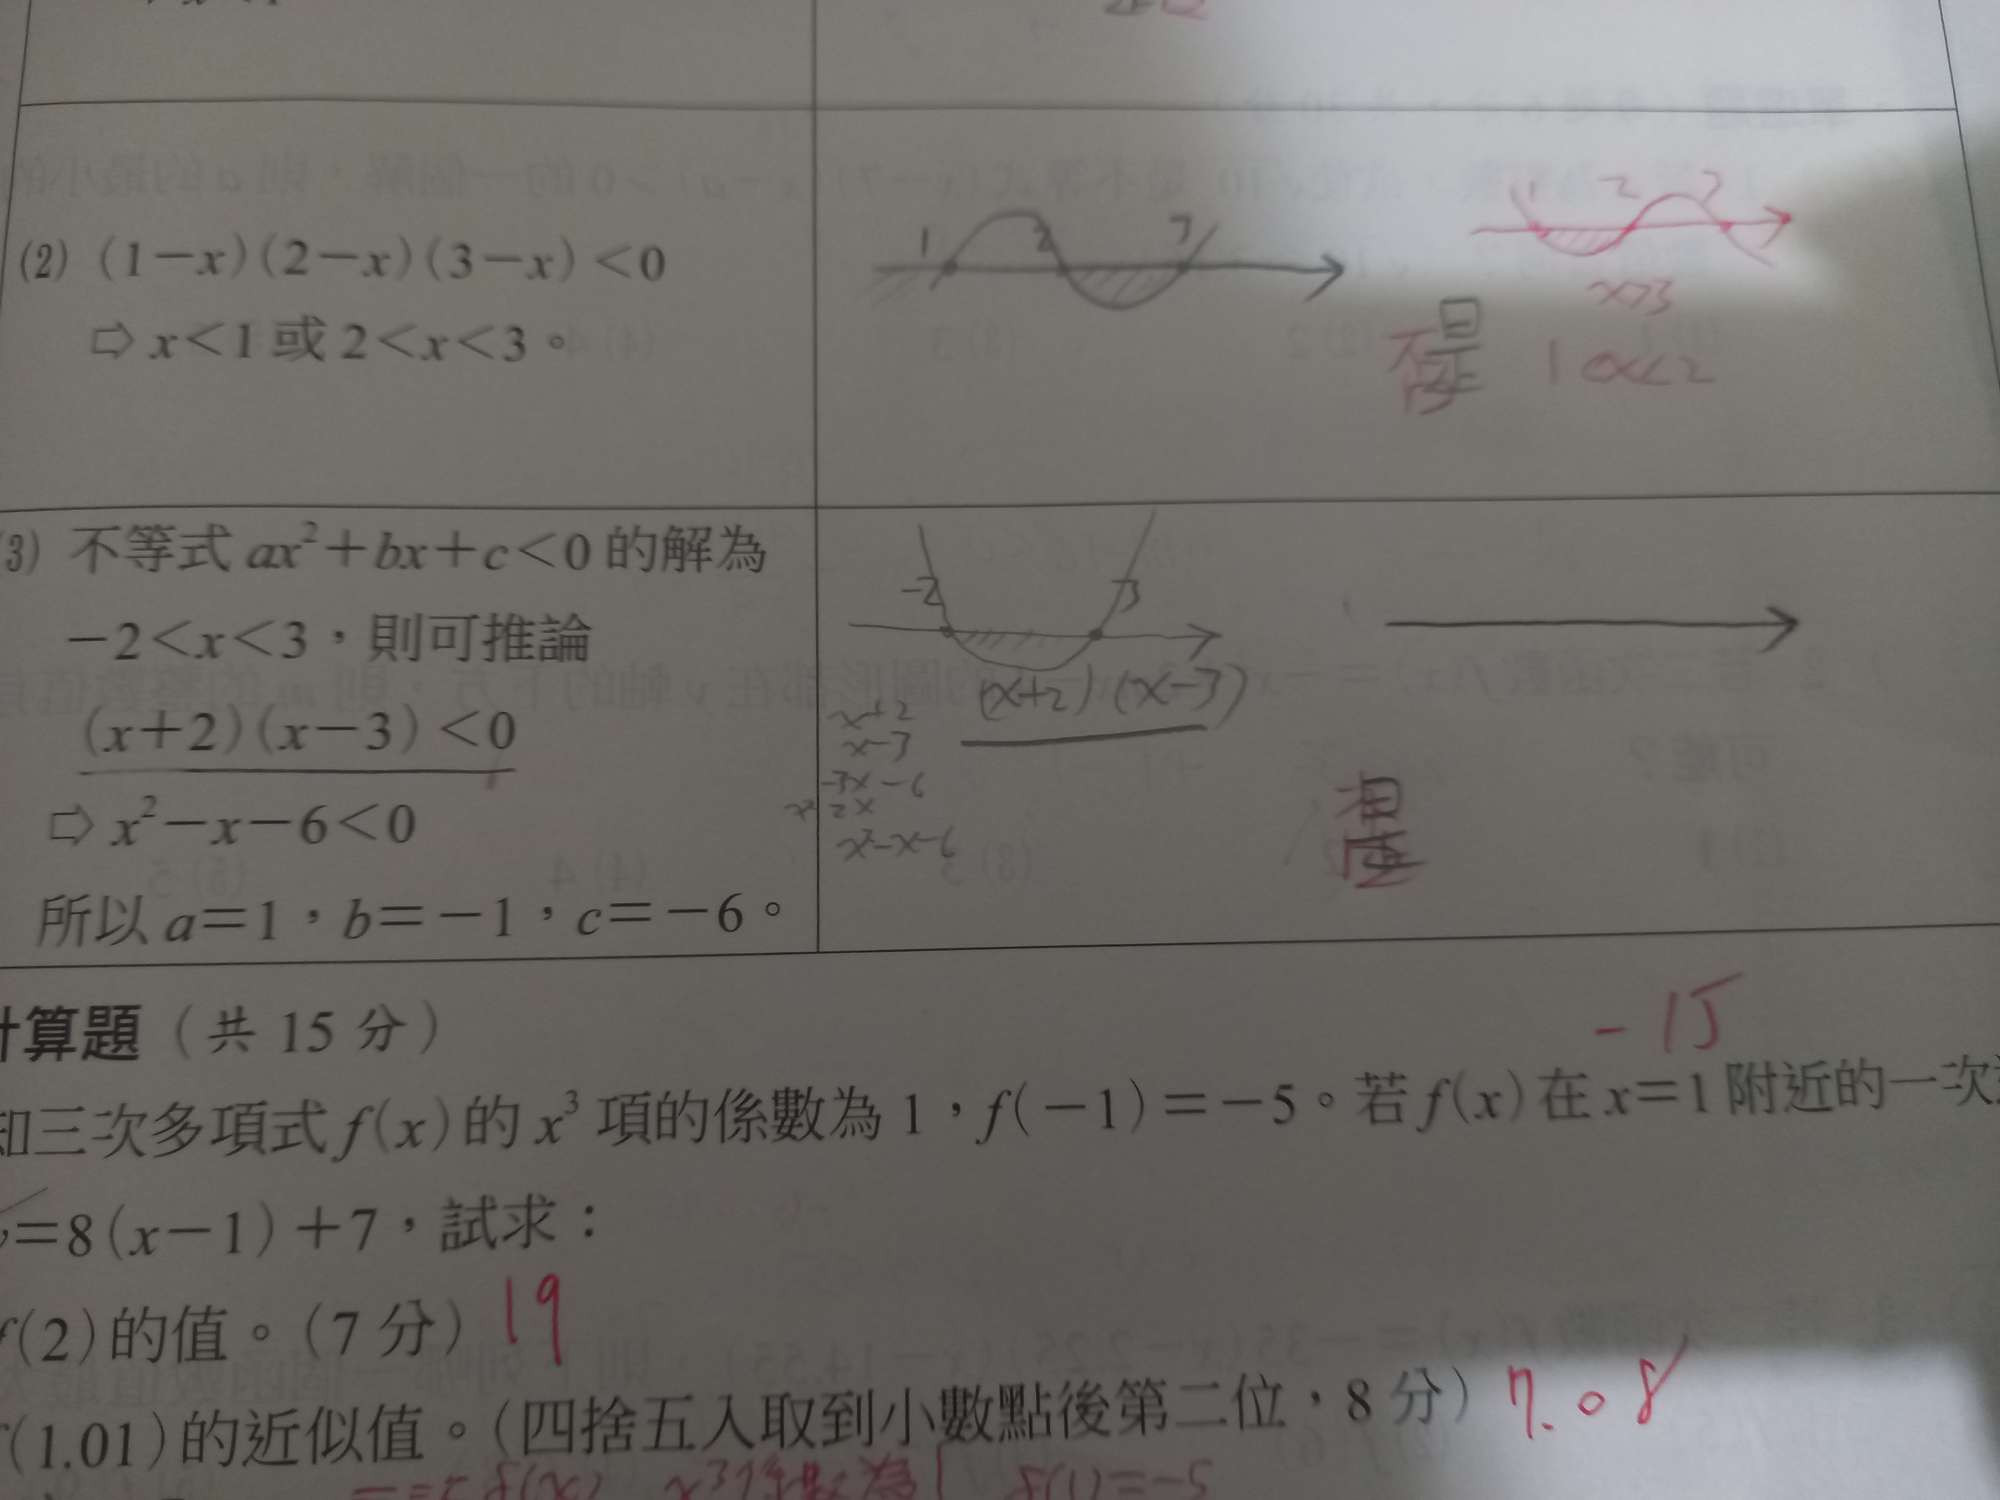 (2) (1－x)(2－x)(3－x)＜0
⇨ x＜1 或 2＜x＜3。
1 2 3
1 2 3
x>3
1<x<2
不是
(3) 不等式 ax²＋bx＋c＜0 的解為
－2＜x＜3，則可推論
(x＋2)(x－3)＜0
⇨ x²－x－6＜0
所以 a＝1，b＝－1，c＝－6。
-2 3
(x+2)(x-3)
x+2
x-3
-3x-6
x² 2x
x²-x-6
計算題（共 15 分）
-15
知三次多項式 f(x) 的 x³ 項的係數為 1，f(－1)＝－5。若 f(x) 在 x＝1 附近的一次
y＝8(x－1)＋7，試求：
f(2) 的值。(7 分) 19
f(1.01) 的近似值。(四捨五入取到小數點後第二位，8 分) 7.08
f(x) x³係數為1 f(1)=-5